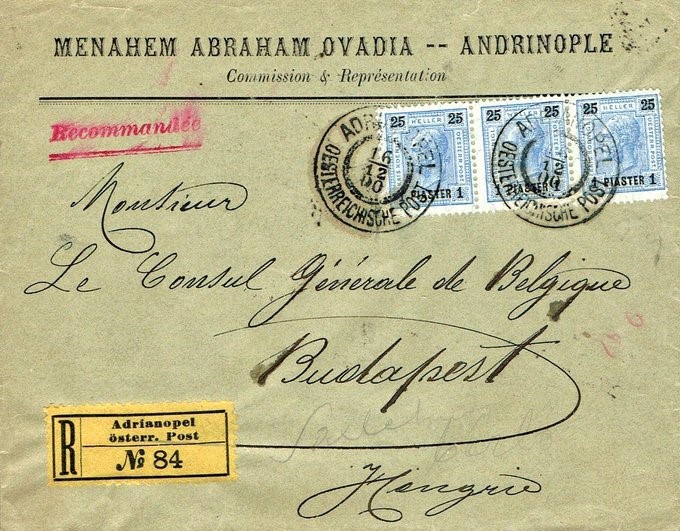 MENAHEM ABRAHAM OVADIA -- ANDRINOPLE
Commission & Représentation
Recommandée
25 HELLER 25
25 HELLER 25
25 HELLER 25
1 PIASTER 1
1 PIASTER 1
1 PIASTER 1
ADRIANOPEL
16
12
00
OESTERREICHISCHE POST
OESTERREICHISCHE POST
Monsieur
Le Consul Générale de Belgique
Budapest
Hongrie
R
Adrianopel
österr. Post
No 84